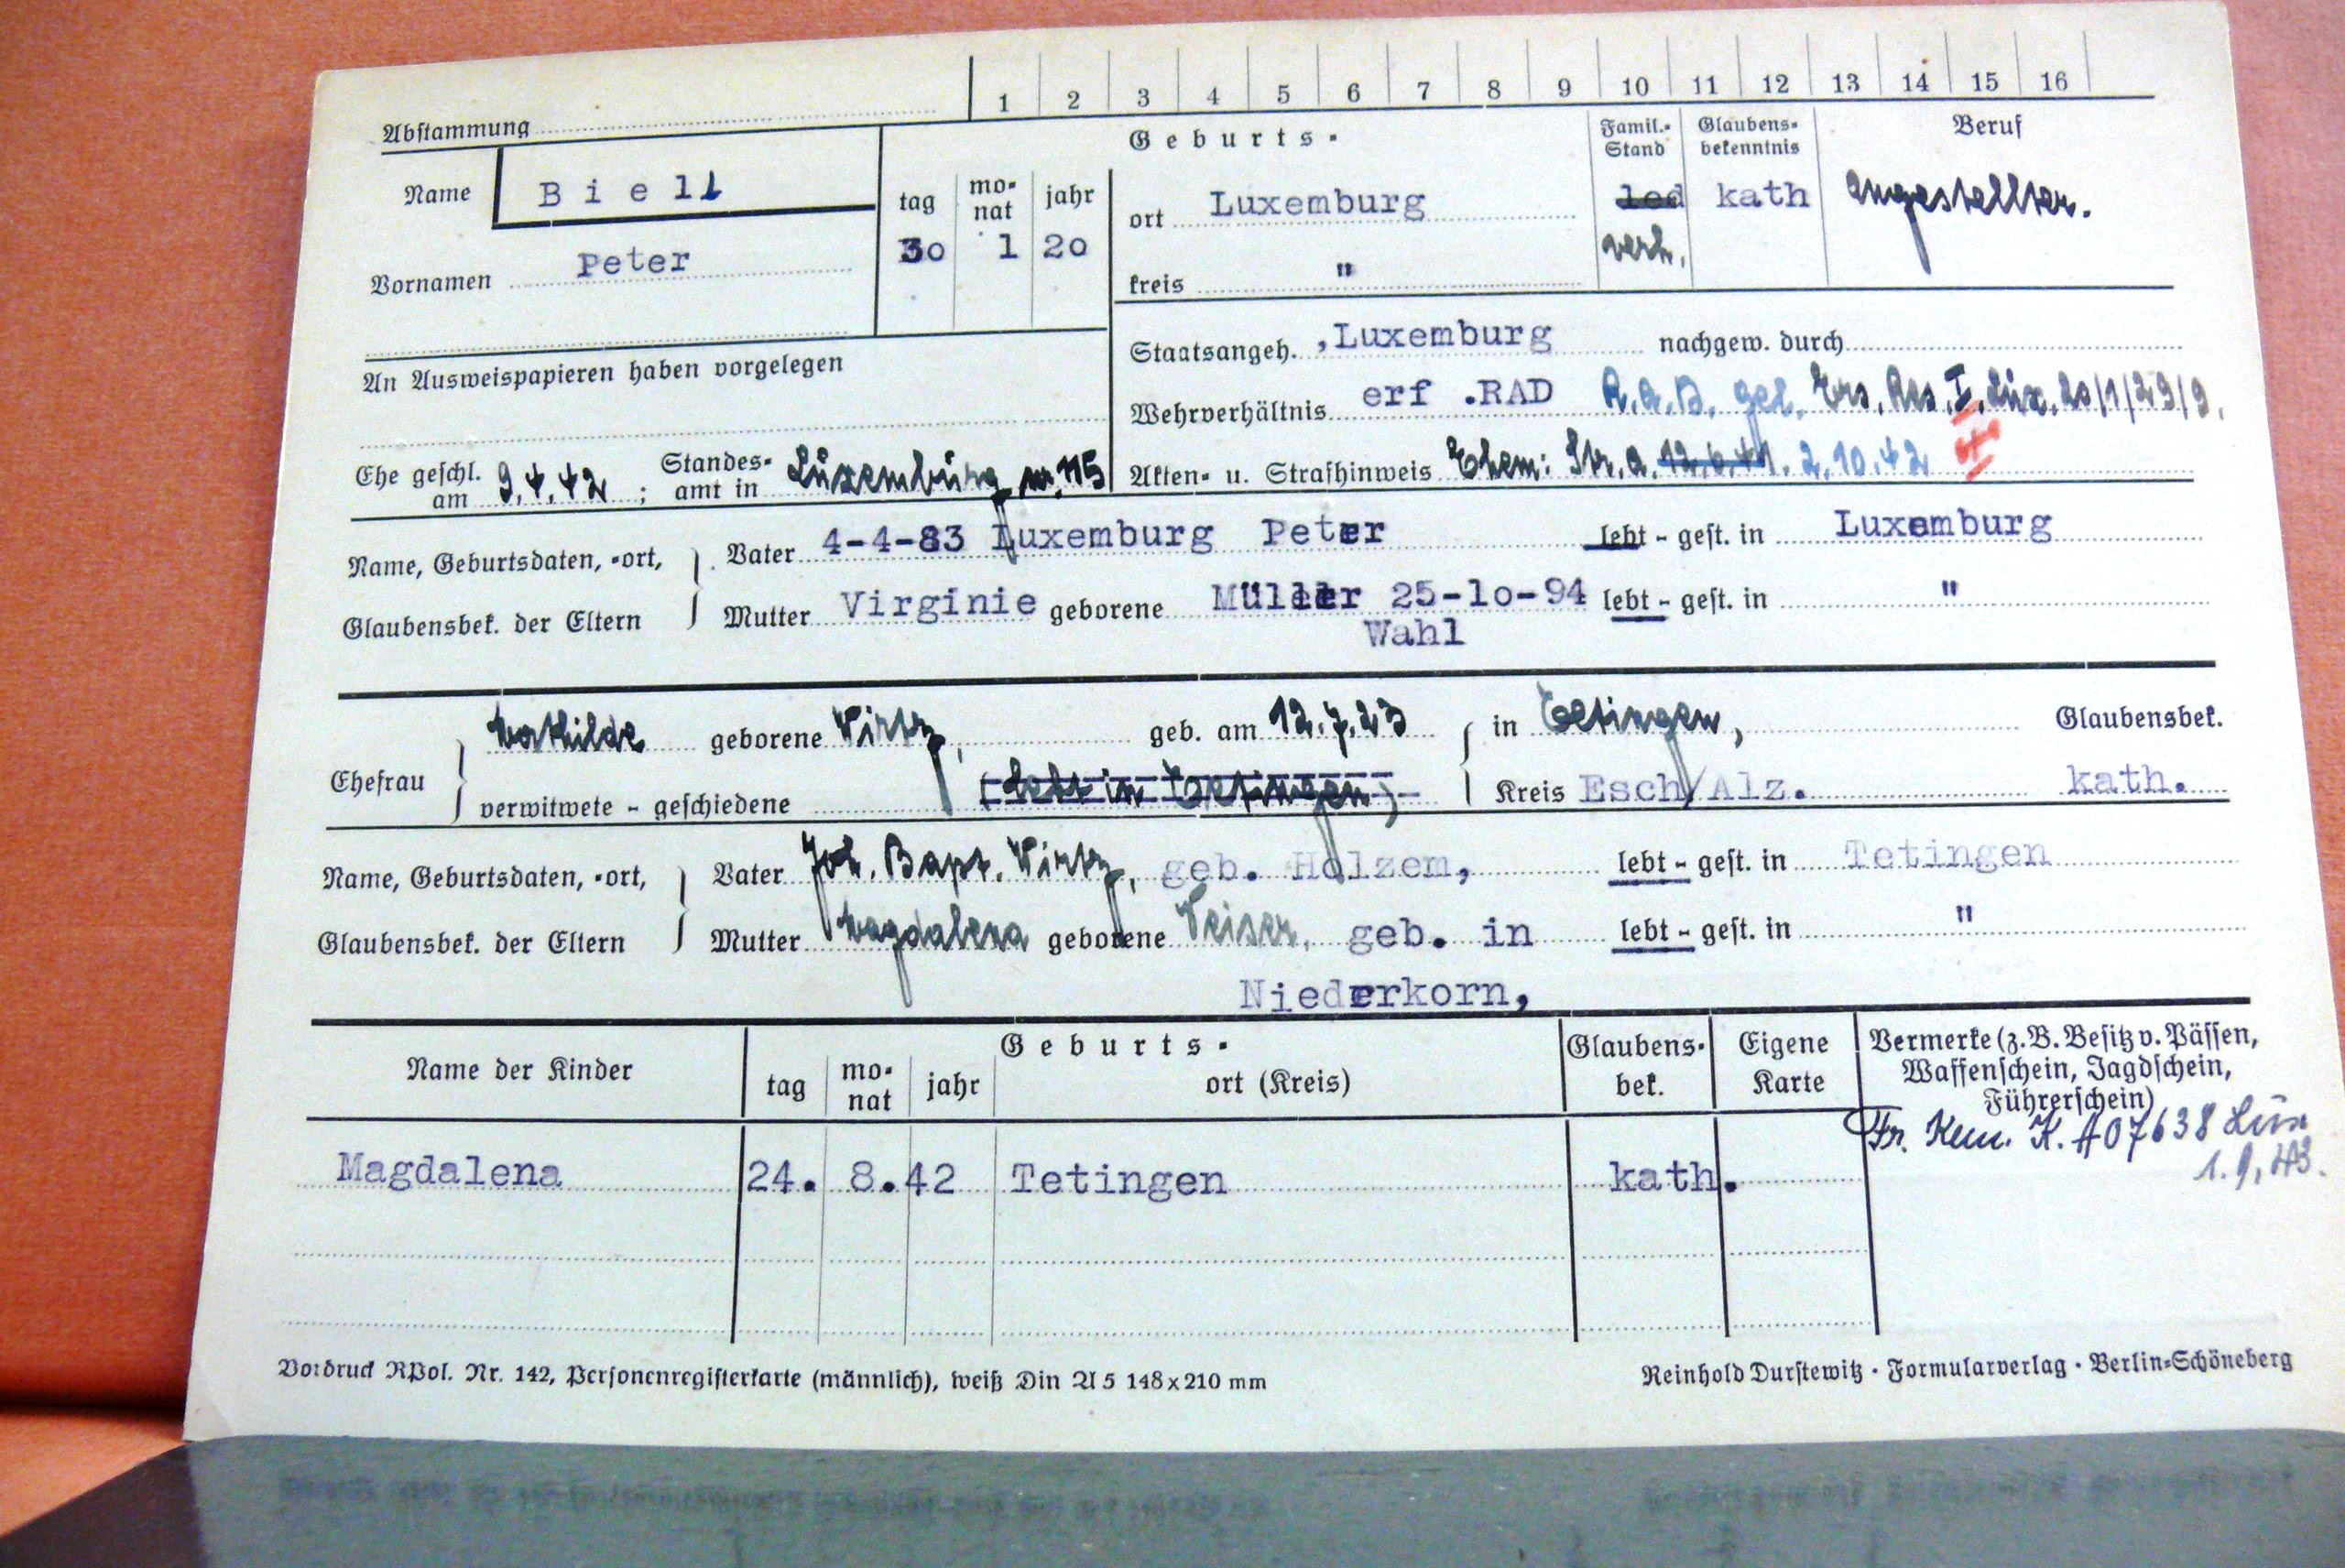 1 2 3 4 5 6 7 8 9 10 11 12 13 14 15 16
Abstammung
Geburts-
Famil.-Stand
Glaubensbekenntnis
Beruf
Name Biell
tag monat jahr
ort Luxemburg
led kath Angestellter.
verh.
Vornamen Peter
30 1 20
kreis "
Staatsangeh. Luxemburg nachgew. durch
An Ausweispapieren haben vorgelegen
Wehrverhältnis erf .RAD R.A.D. gel. Ers. Res. I. Lux. 20/1/29/9.
Ehe geschl. am 9.4.42 ; Standesamt in Luxemburg nr. 115
Akten- u. Strafhinweis Ehem: Str. a. 12.6.41. 2.10.42
Name, Geburtsdaten, -ort, Vater 4-4-83 Luxemburg Peter lebt - gest. in Luxemburg
Glaubensbek. der Eltern Mutter Virginie geborene Müller 25-10-94 lebt - gest. in "
Wahl
Mathilde geborene Wirtz, geb. am 12.7.23 in Tetingen, Glaubensbek.
Ehefrau verwitwete - geschiedene (lebt in Tetingen) Kreis Esch/Alz. kath.
Name, Geburtsdaten, -ort, Vater Joh. Bapt. Wirtz, geb. Holzem, lebt - gest. in Tetingen
Glaubensbek. der Eltern Mutter Magdalena geborene Weiser, geb. in lebt - gest. in "
Niederkorn,
Name der Kinder
Geburts-
tag monat jahr ort (Kreis)
Glaubensbek.
Eigene Karte
Vermerke (z. B. Besitz v. Pässen,
Waffenschein, Jagdschein,
Führerschein)
Fr. Kenn. K. A07638 Lux
1.9.43.
Magdalena 24. 8. 42 Tetingen kath.
Vordruck RPol. Nr. 142, Personenregisterkarte (männlich), weiß Din A 5 148 x 210 mm
Reinhold Durstewitz · Formularverlag · Berlin-Schöneberg